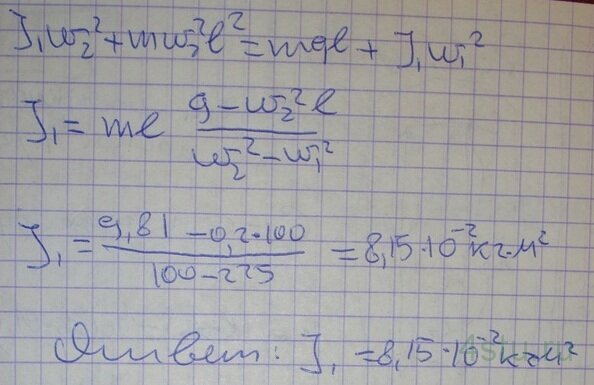 J₁ω₂² + mω₂²l² = mgl + J₁ω₁²
J₁ = ml (g − ω₂²l)/(ω₂² − ω₁²)
J₁ = (9,81 − 0,2·100)/(100 − 225) = 8,15·10⁻² кг·м²
Ответ: J₁ = 8,15·10⁻² кг·м²